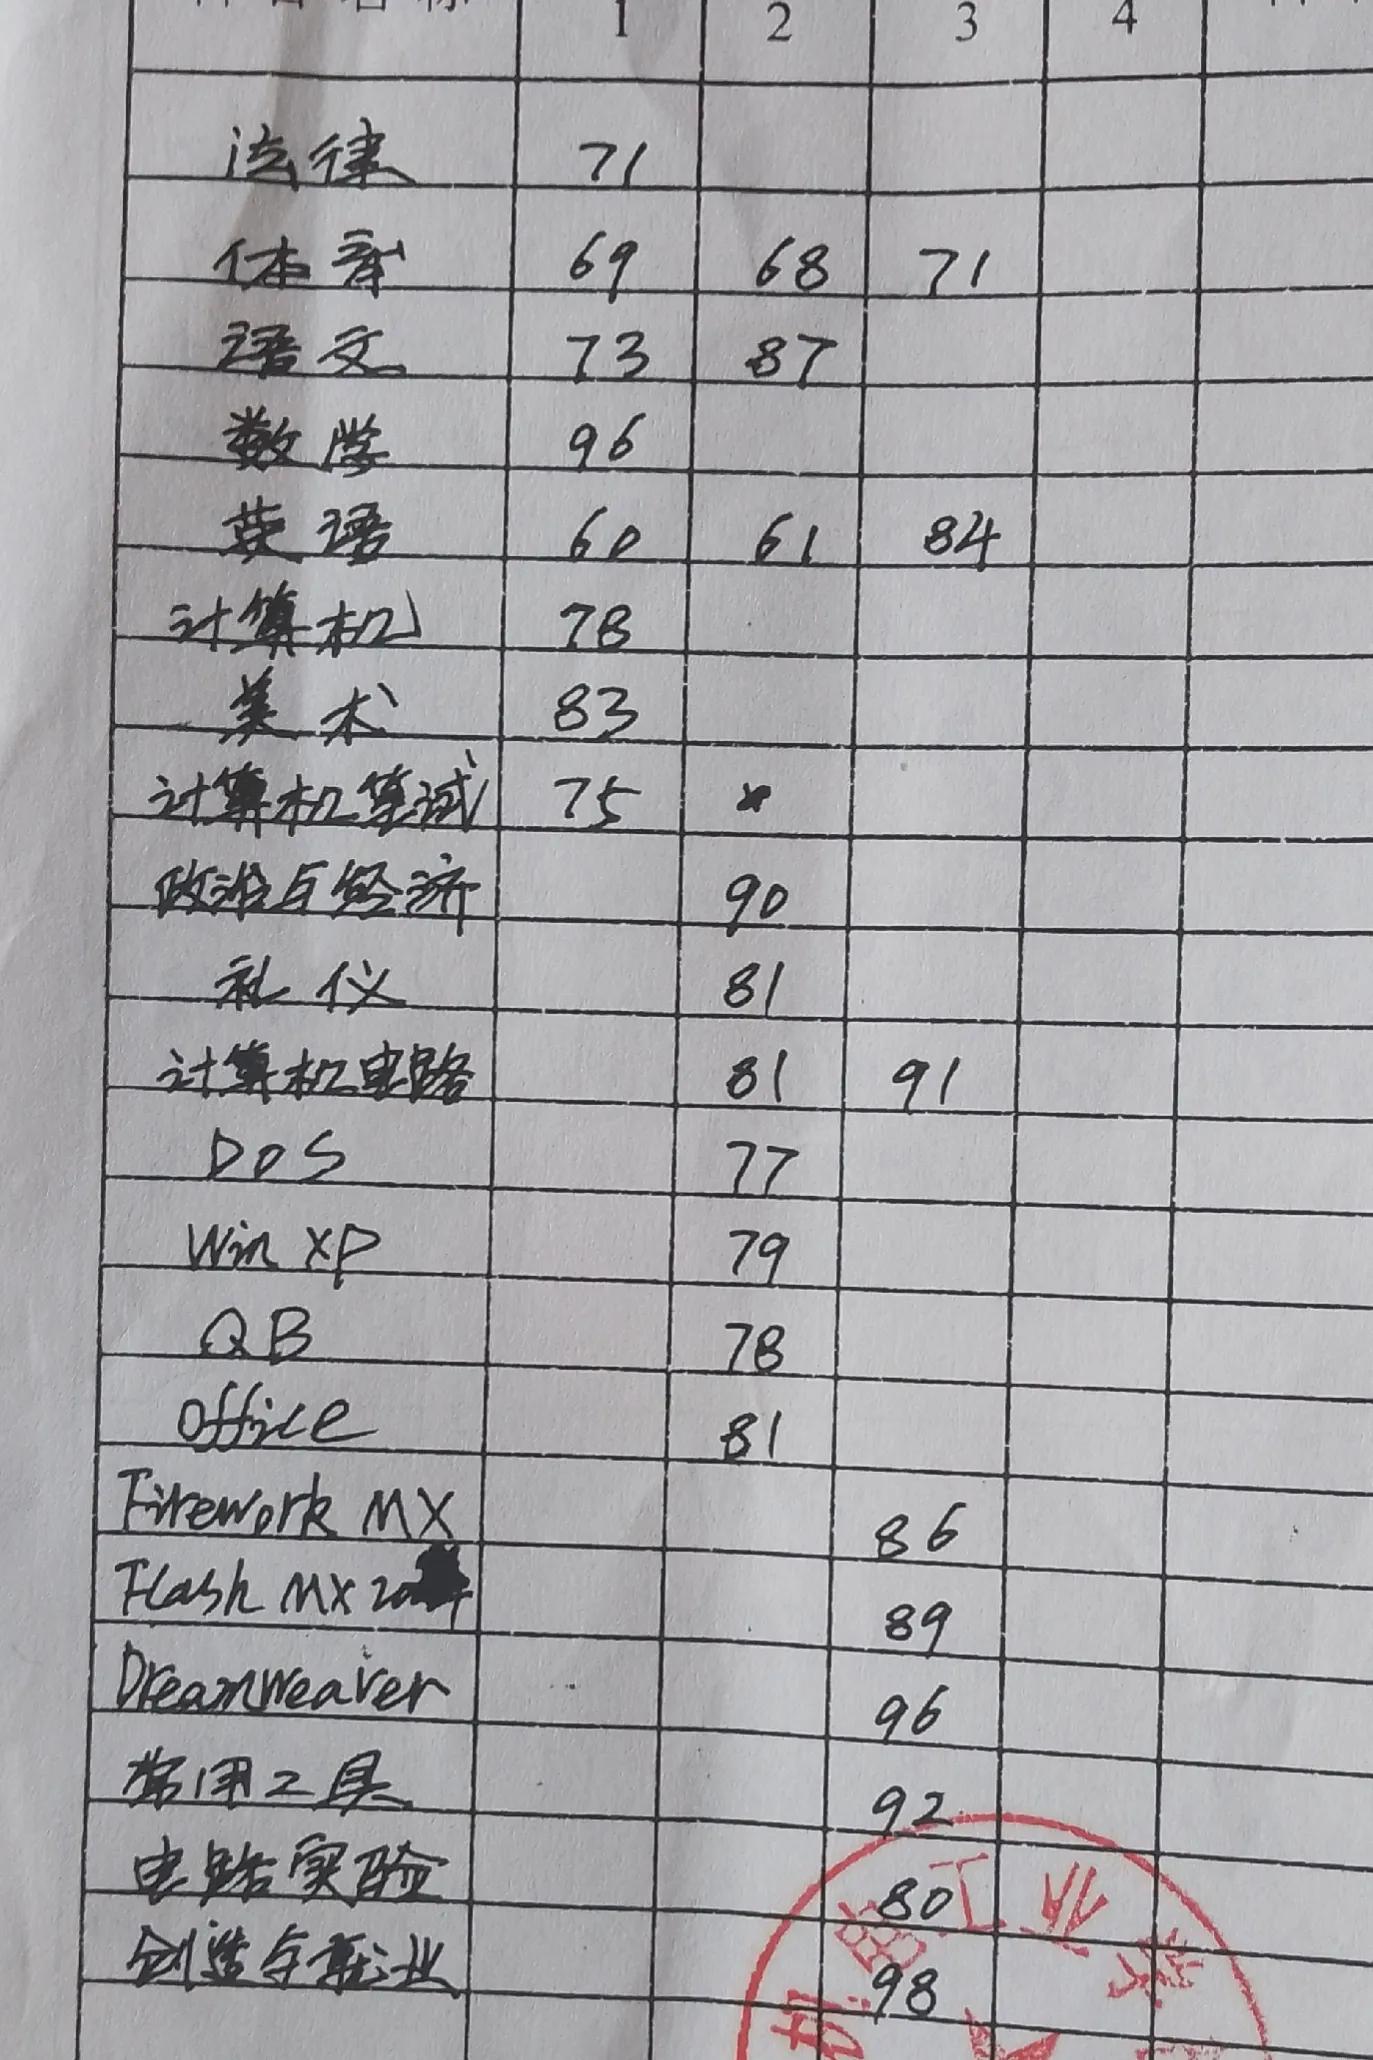 科目名称 1 2 3 4
法律 71
体育 69 68 71
语文 73 87
数学 96
英语 60 61 84
计算机 78
美术 83
计算机笔试 75 *
政治与经济 90
礼仪 81
计算机电路 81 91
DOS 77
Win XP 79
QB 78
Office 81
Firework MX 86
Flash MX 89
Dreamweaver 96
常用工具 92
电路实验 80
创造与就业 98
工业